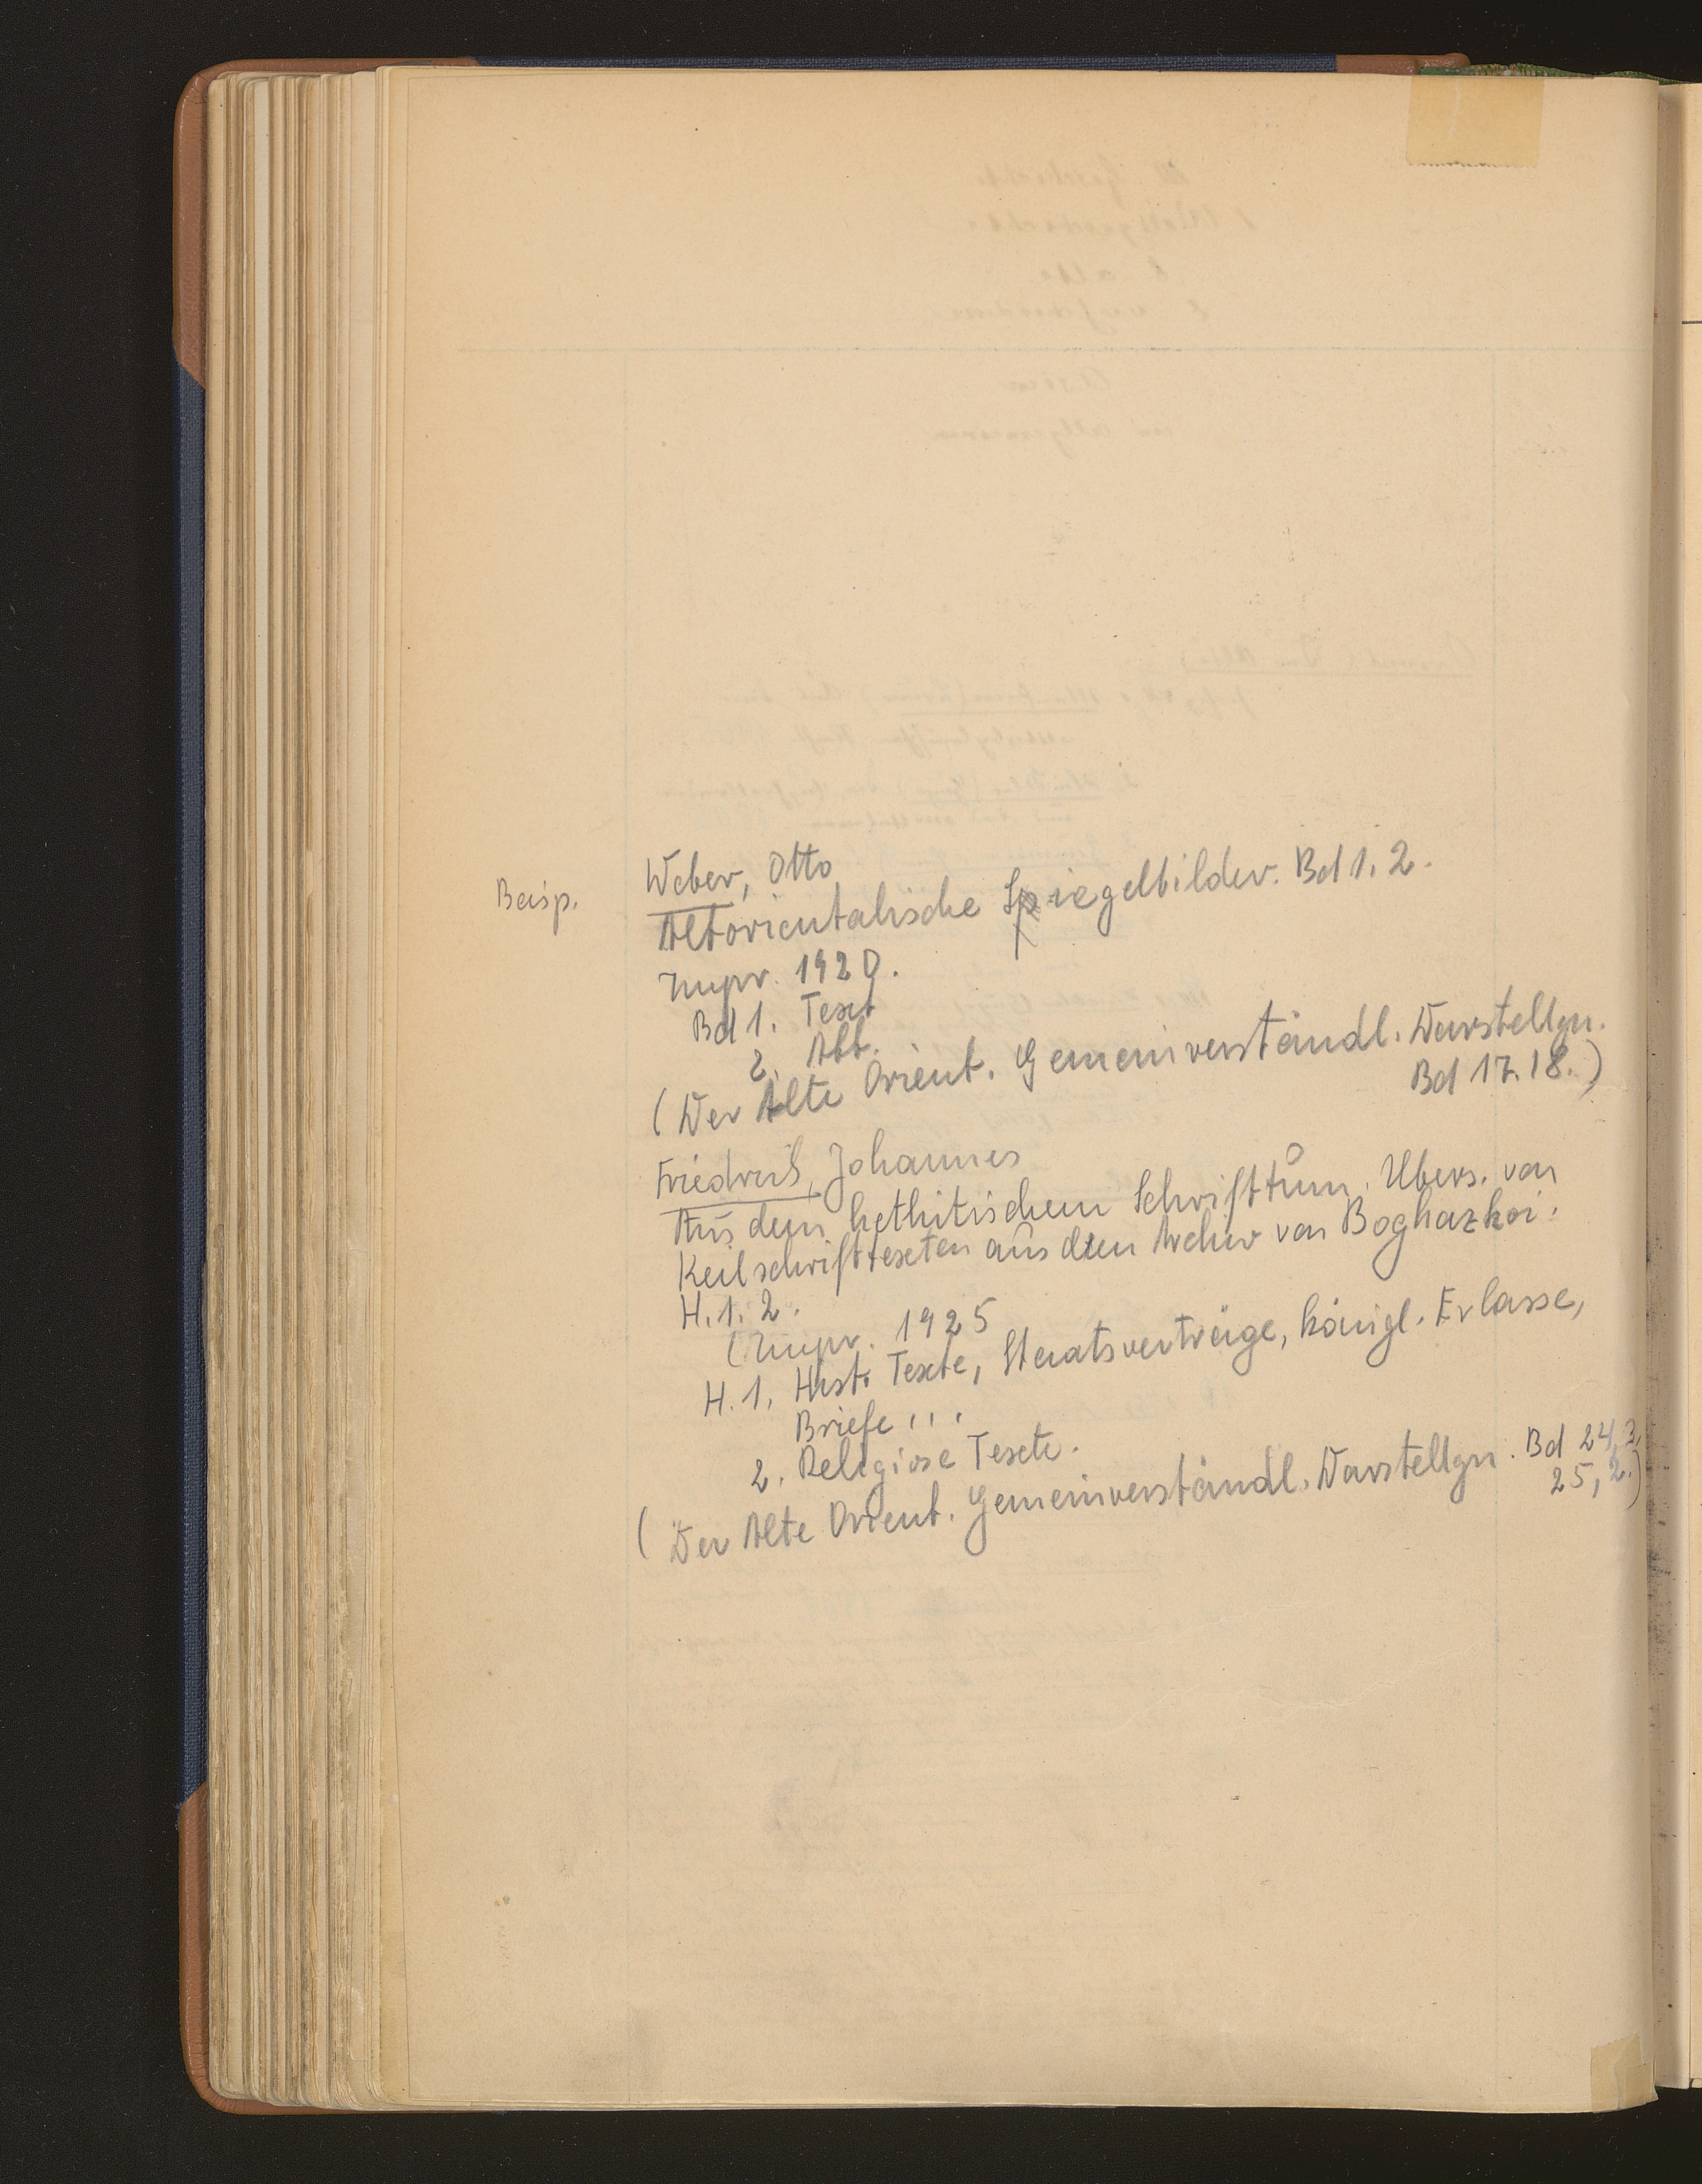 Beisp.
Weber, Otto
Altorientalische Siegelbilder. Bd 1. 2.
Impr. 1920.
Bd 1. Text
2. Abb.
(Der Alte Orient. Gemeinverständl. Darstellgn.
Bd 17. 18.)
Friedrich, Johannes
Aus dem hethitischem Schrifttum. Übers. von
Keilschrifttexten aus dem Archiv von Boghazkoi.
H. 1. 2.
(Impr. 1925
H. 1. Hist. Texte, Staatsverträge, königl. Erlasse,
Briefe ...
2. Religiöse Texte.
(Der Alte Orient. Gemeinverständl. Darstellgn. Bd 24,3
25, 2.)